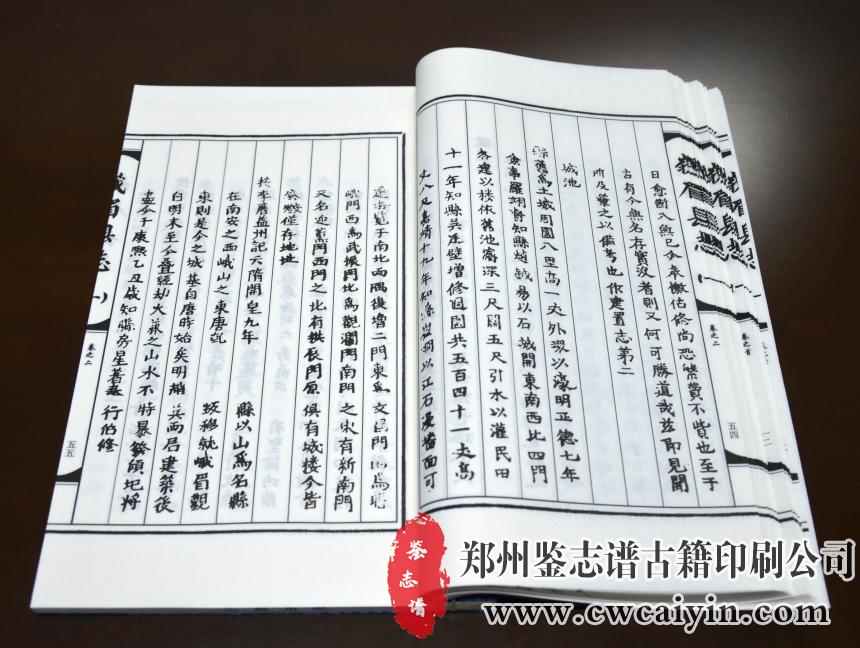 日愈斷入無已分奈檄估修尚恐繁費不貲也至于
古有今無名存實沒者則又何可勝道哉茲即見聞
所及彙之以備考也作建置志第二
城池
縣舊為土城周圍八里高一丈外浚以濠明正德七年
僉事羅翊湔知縣趙鉞易以石城開東南西北四門
各建以樓依舊池濬深三尺闊五尺引水以灌民田
十一年知縣吳廷璧增修週圍共五百四十一丈高
丈八尺嘉靖十九年知縣以江石漫當面可
卷之二
五四
卷之首
于南北西隅復增二門東為文昌門西為
峨門西為武振門北為觀瀾門南門之東有新南門
又名迎薰門西門之北有拱辰門原俱有城樓今皆
廢燬僅存地址
按李膺益州記云隋開皇九年
縣以山為名縣
在南安之西峨山之東唐乾
坂移就峨眉觀
東則是今之城基自唐時始矣明
其而居建築後
自明末至今疊經劫火兼之山水不時暴發傾圮將
盡今于康熙乙丑歲知縣房星著 行佰修
峨眉縣志
卷之二
五五
鉴志谱
郑州鉴志谱古籍印刷公司
www.cwcaiyin.com